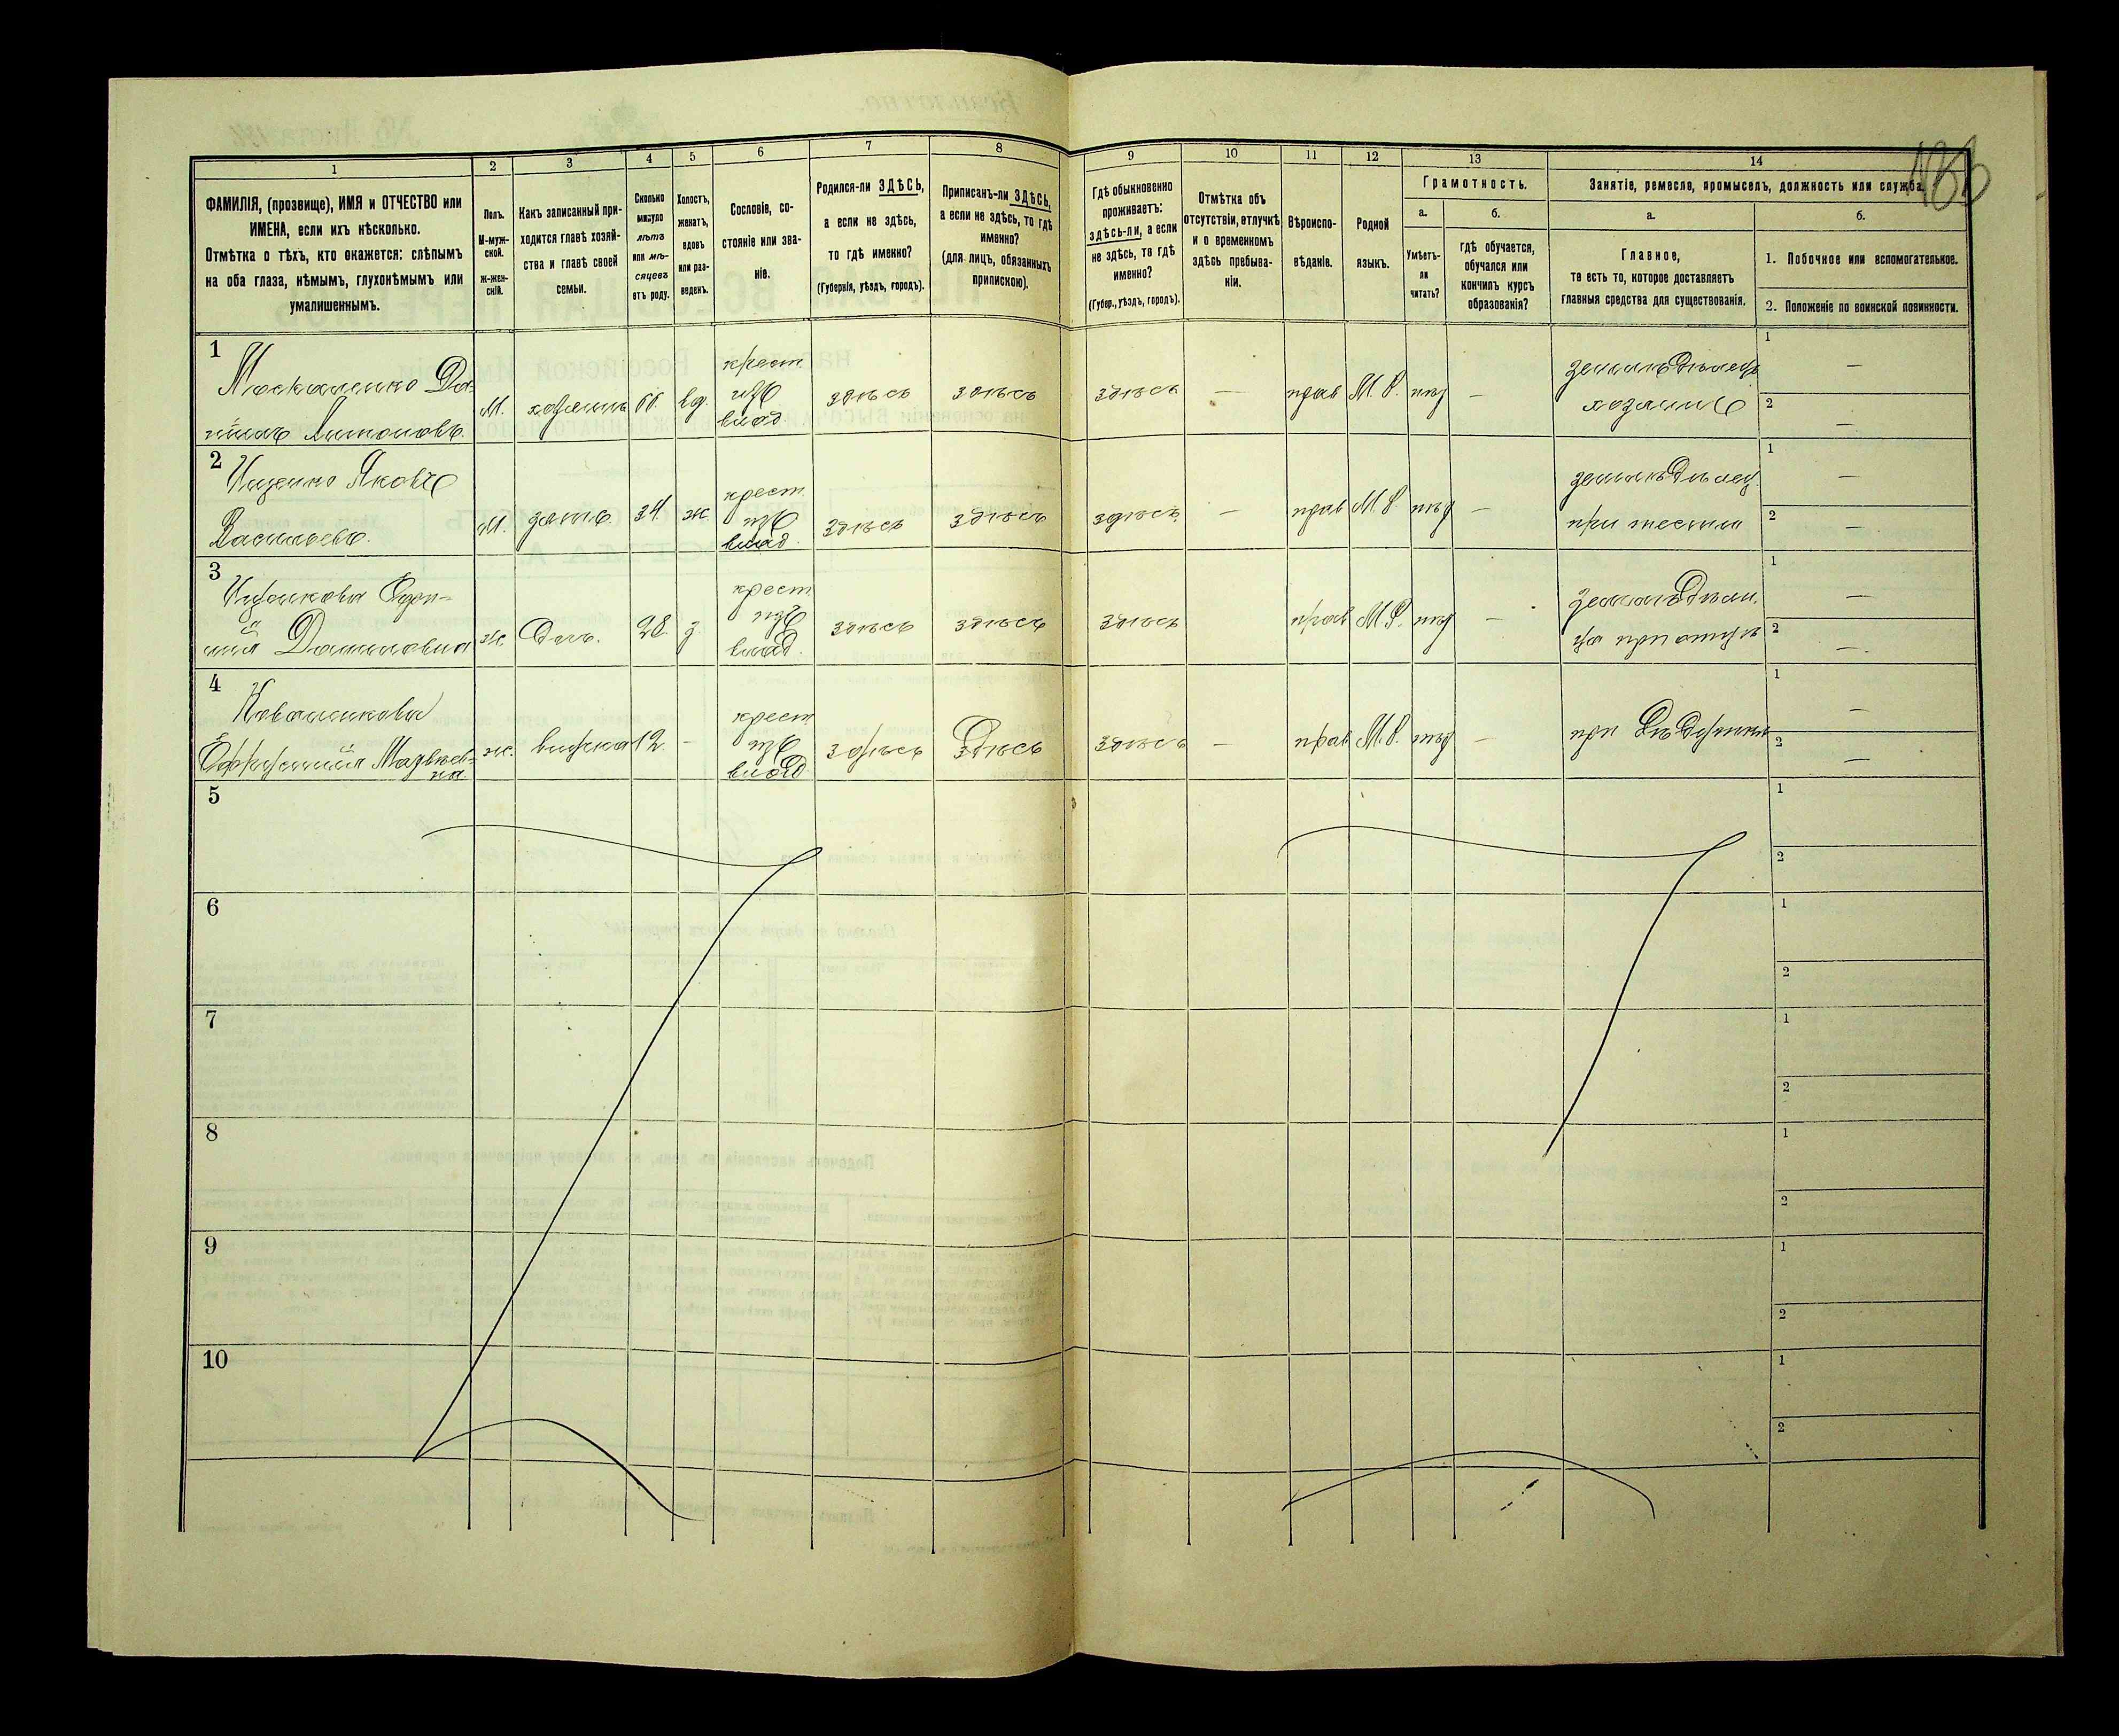 1 2 3 4 5 6 7 8 9 10 11 12 13 14
ФАМИЛІЯ, (прозвище), ИМЯ и ОТЧЕСТВО или
ИМЕНА, если ихъ нѣсколько.
Отмѣтка о тѣхъ, кто окажется: слѣпымъ
на оба глаза, нѣмымъ, глухонѣмымъ или
умалишеннымъ.
Полъ.
М-муж-
ской.
ж-жен-
скій.
Какъ записанный при-
ходится главѣ хозяй-
ства и главѣ своей
семьи.
Сколько
минуло
лѣтъ
или мѣ-
сяцевъ
отъ роду.
Холостъ,
женатъ,
вдовъ
или раз-
веденъ.
Сословіе, со-
стояніе или зва-
ніе.
Родился-ли ЗДѢСЬ,
а если не здѣсь,
то гдѣ именно?
(Губернія, уѣздъ, городъ).
Приписанъ-ли ЗДѢСЬ,
а если не здѣсь, то гдѣ
именно?
(для лицъ, обязанныхъ
припискою).
Гдѣ обыкновенно
проживаетъ:
здѣсь-ли, а если
не здѣсь, то гдѣ
именно?
(Губер., уѣздъ, городъ).
Отмѣтка объ
отсутствіи, отлучкѣ
и о временномъ
здѣсь пребыва-
ніи.
Вѣроиспо-
вѣданіе.
Родной
языкъ.
Грамотность.
а.
Умѣетъ-
ли
читать?
б.
гдѣ обучается,
обучался или
кончилъ курсъ
образованія?
Занятіе, ремесло, промыселъ, должность или служба.
а.
Главное,
то есть то, которое доставляетъ
главныя средства для существованія.
б.
1. Побочное или вспомогательное.
2. Положеніе по воинской повинности.
1
Москаленко Да-
нiилъ Антоновъ.
М. хозяинъ 66. вд.
крест.
изъ
влад.
здѣсь здѣсь здѣсь — прав М.Р. нѣт —
земледѣлецъ
хозяинъ
1 —
2 —
2
Ищенко Яковъ
Васильевъ.
М. зять. 34. ж.
крест.
изъ
влад.
здѣсь здѣсь здѣсь — прав М.Р. нѣт —
земледѣлец.
при тестѣ
1 —
2 —
3
Ищенкова
Даниловна
ж. дочь. 28. з.
крест
изъ
влад.
здѣсь здѣсь здѣсь прав М.Р. нѣт —
земледѣли.
ца при отцѣ
1 —
2 —
4
Коваленкова
Матвѣев-
на
ж. внучка 12. —
крест
изъ
влад
здѣсь здѣсь здѣсь — прав М.Р. нѣт —
при дѣдушкѣ
1 —
2 —
5
1
2
6
1
2
7
1
2
8
1
2
9
1
2
10
1
2